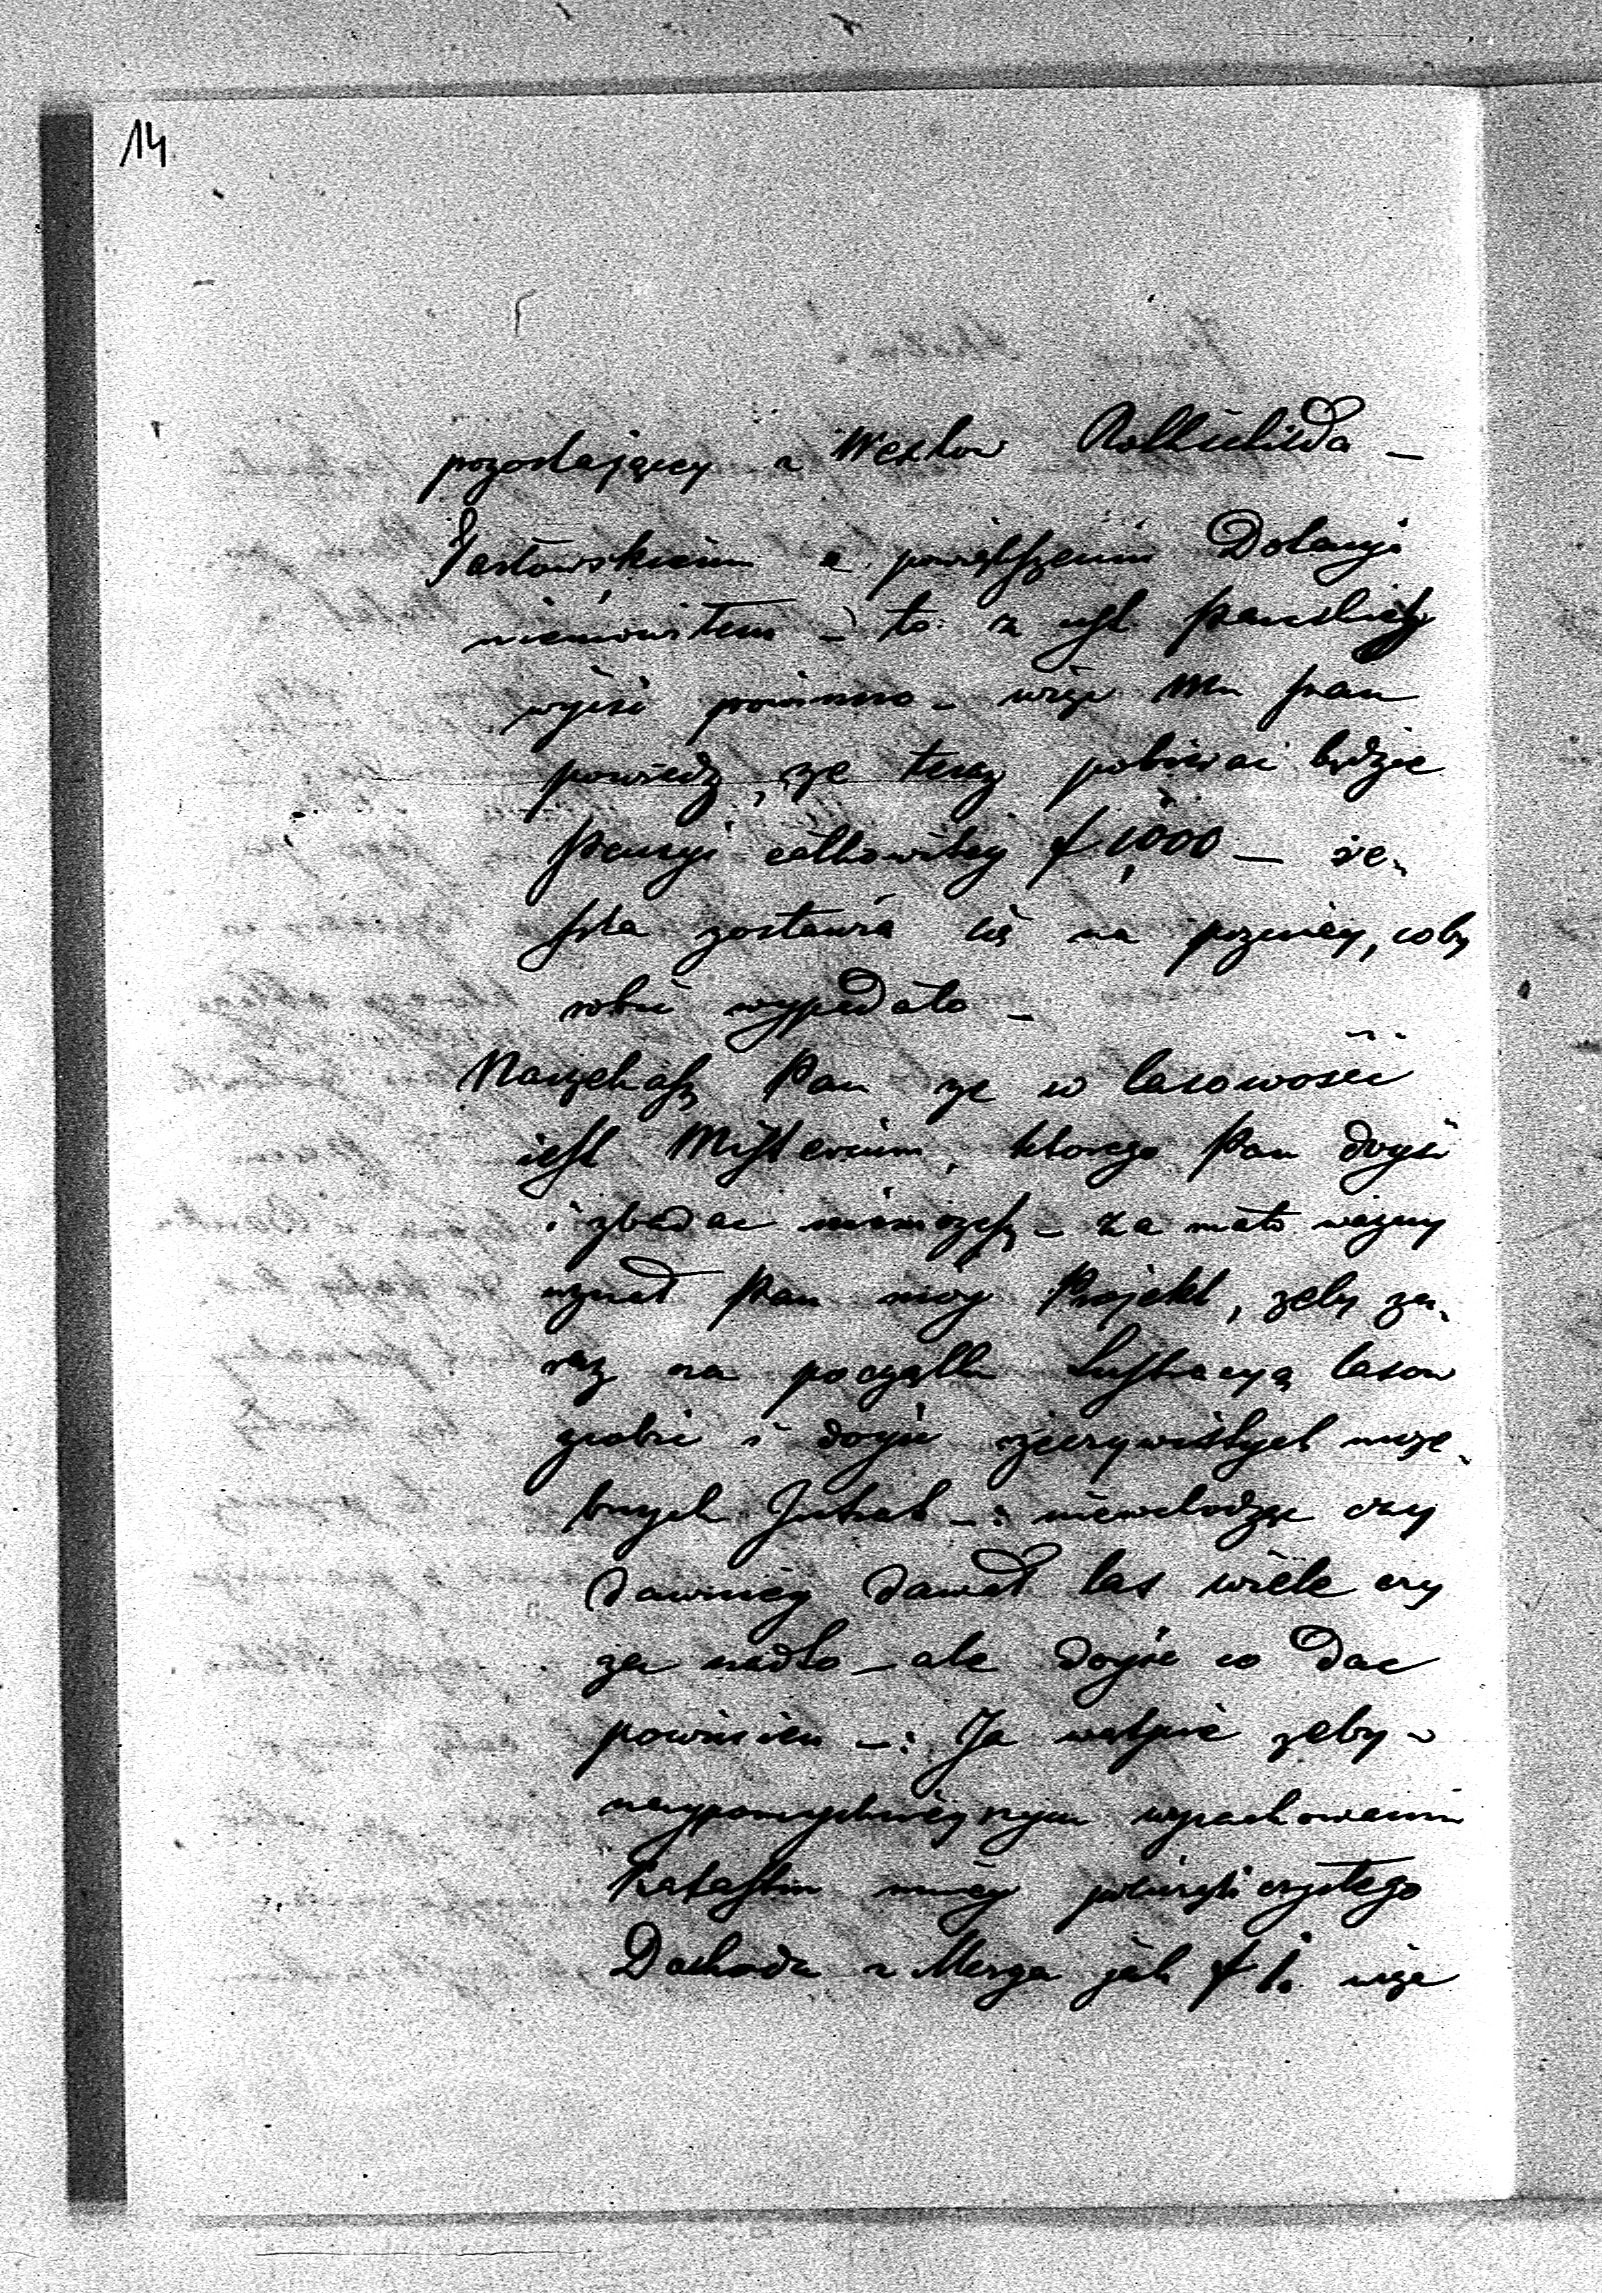 14
pozostający z Wexlow Rothschilda —
Jasłowskiem a powiększeniu Dotacyi
niemowitem — to z ust Pańskich
wyjść powinno — więc Mu Pan
powiedz, ze teraz pobierać będzie
Pensyi całkowitey f 1000 — re-
szta zostawia się na pozniey, coby
robić wypadało —
Narzekasz Pan ze w lasowości
iest Misterium, ktorego Pan dojść
i zbadac niemozesz — za mało wazny
uznał Pan moy Projekt, zeby za-
raz na początku Lustracyą lasow
zrobić i dojść rzeczywistych
Intrat —: niewchodząc czy
dawniey dawał las wiele czy
za nadto — ale dojść co dac
powinien —: Ja wątpie zeby w
naypomyslnieyszym wyrachowaniu
Katastru mniey przynieśli czystego
Dochodu z Morga jak f 1. więc